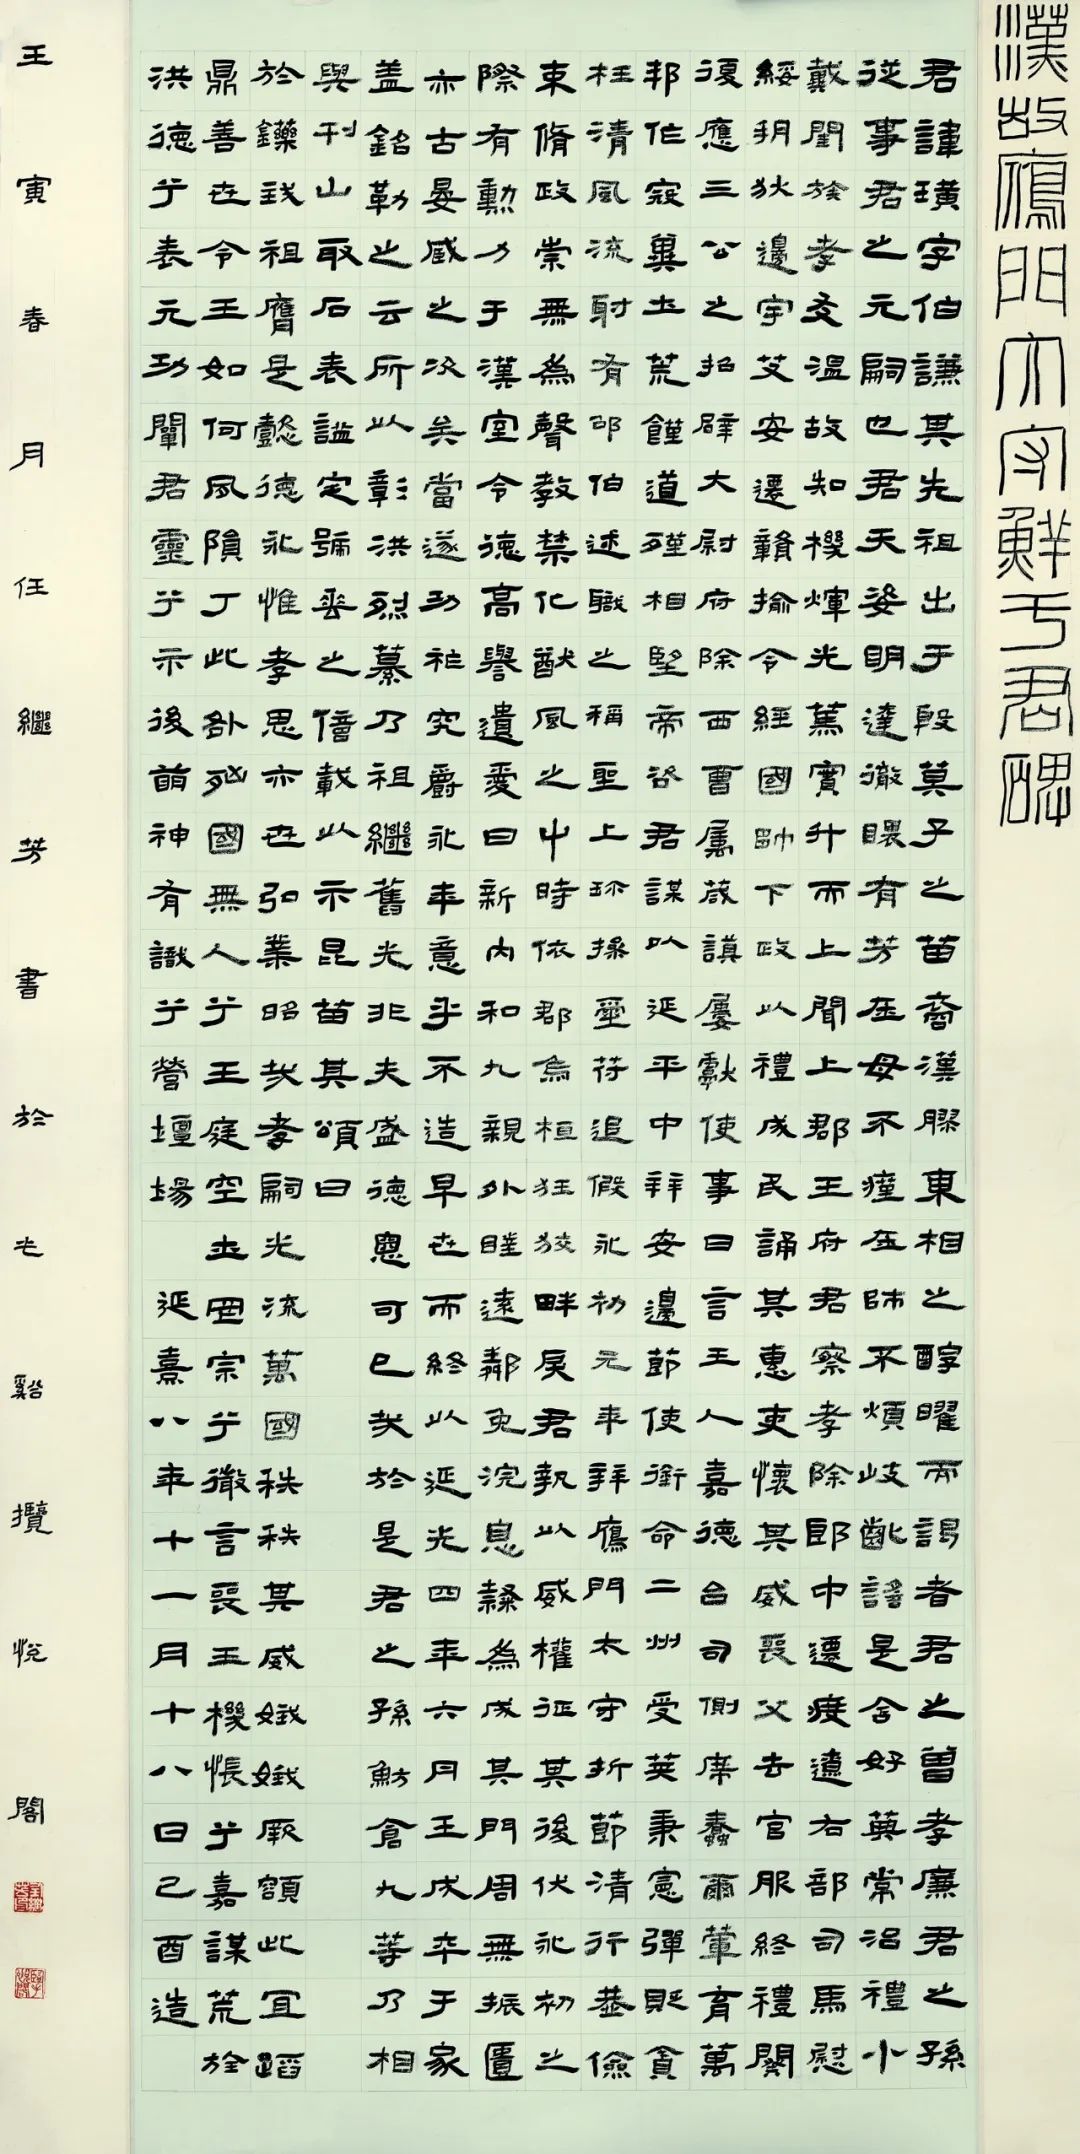 漢故鴈門太守鮮于君碑
君諱璜字伯謙其先祖出于殷箕子之苗裔漢膠東相之醇曜而謁者君之曾孝廉君之孫
從事君之元嗣也君天姿明達徹賱有芳在母不瘽在師不煩岐齔謠是含好典常治禮小
戴閨族孝友溫故知機煇光篤實升而上聞上郡王府君察孝除郎中遷度遼右部司馬慰
綏朔狄邊宇艾安遷贛揄令經國帥下政以禮成民誦其惠吏懷其威喪父去官服終禮闋
復應三公之招辟大尉府除西曹屬茂謨屢獻使事日言王人嘉德台司側席蠢爾葷育萬
邦作寇冀土荒饉道殣相望帝咨君謀以延平中拜安邊節使銜命二州受莢秉憲彈貶貪
枉清風流射有邵伯述職之稱聖上珍操璽符追假永初元年拜鴈門太守折節清行恭儉
束脩政崇無爲聲教禁化猷風之中時依郡烏桓狂狡畔戾君執以威權征其後伏永初之
際有勳力于漢室令德高譽遺愛日新內和九親外睦遠鄰兔浣息隸爲成其門周無振匱
亦古晏臧之次矣當遂功祚究爵永年意乎不造早世而終以延光四年六月壬戌卒于家
蓋銘勒之云所以彰洪烈纂乃祖繼舊先非夫盛德惡可已哉於是君之孫魴倉九等乃相
與刊山取石表謚定號垂之億載以示昆苗其頌曰
於鑠我祖膺是懿德永惟孝思亦世弘業昭哉孝嗣光流萬國秩秩其威娥娥厥頟此宜蹈
鼎善世令王如何夙隕丁此咎凶國無人兮王庭空士罔宗兮徽言喪玉機悵兮嘉謀荒於
洪德兮表元功闡君靈兮示後萌神有識兮營壇場 延熹八年十一月十八日己酉造
壬寅春月任繼芳書於尤谿攬悅閣